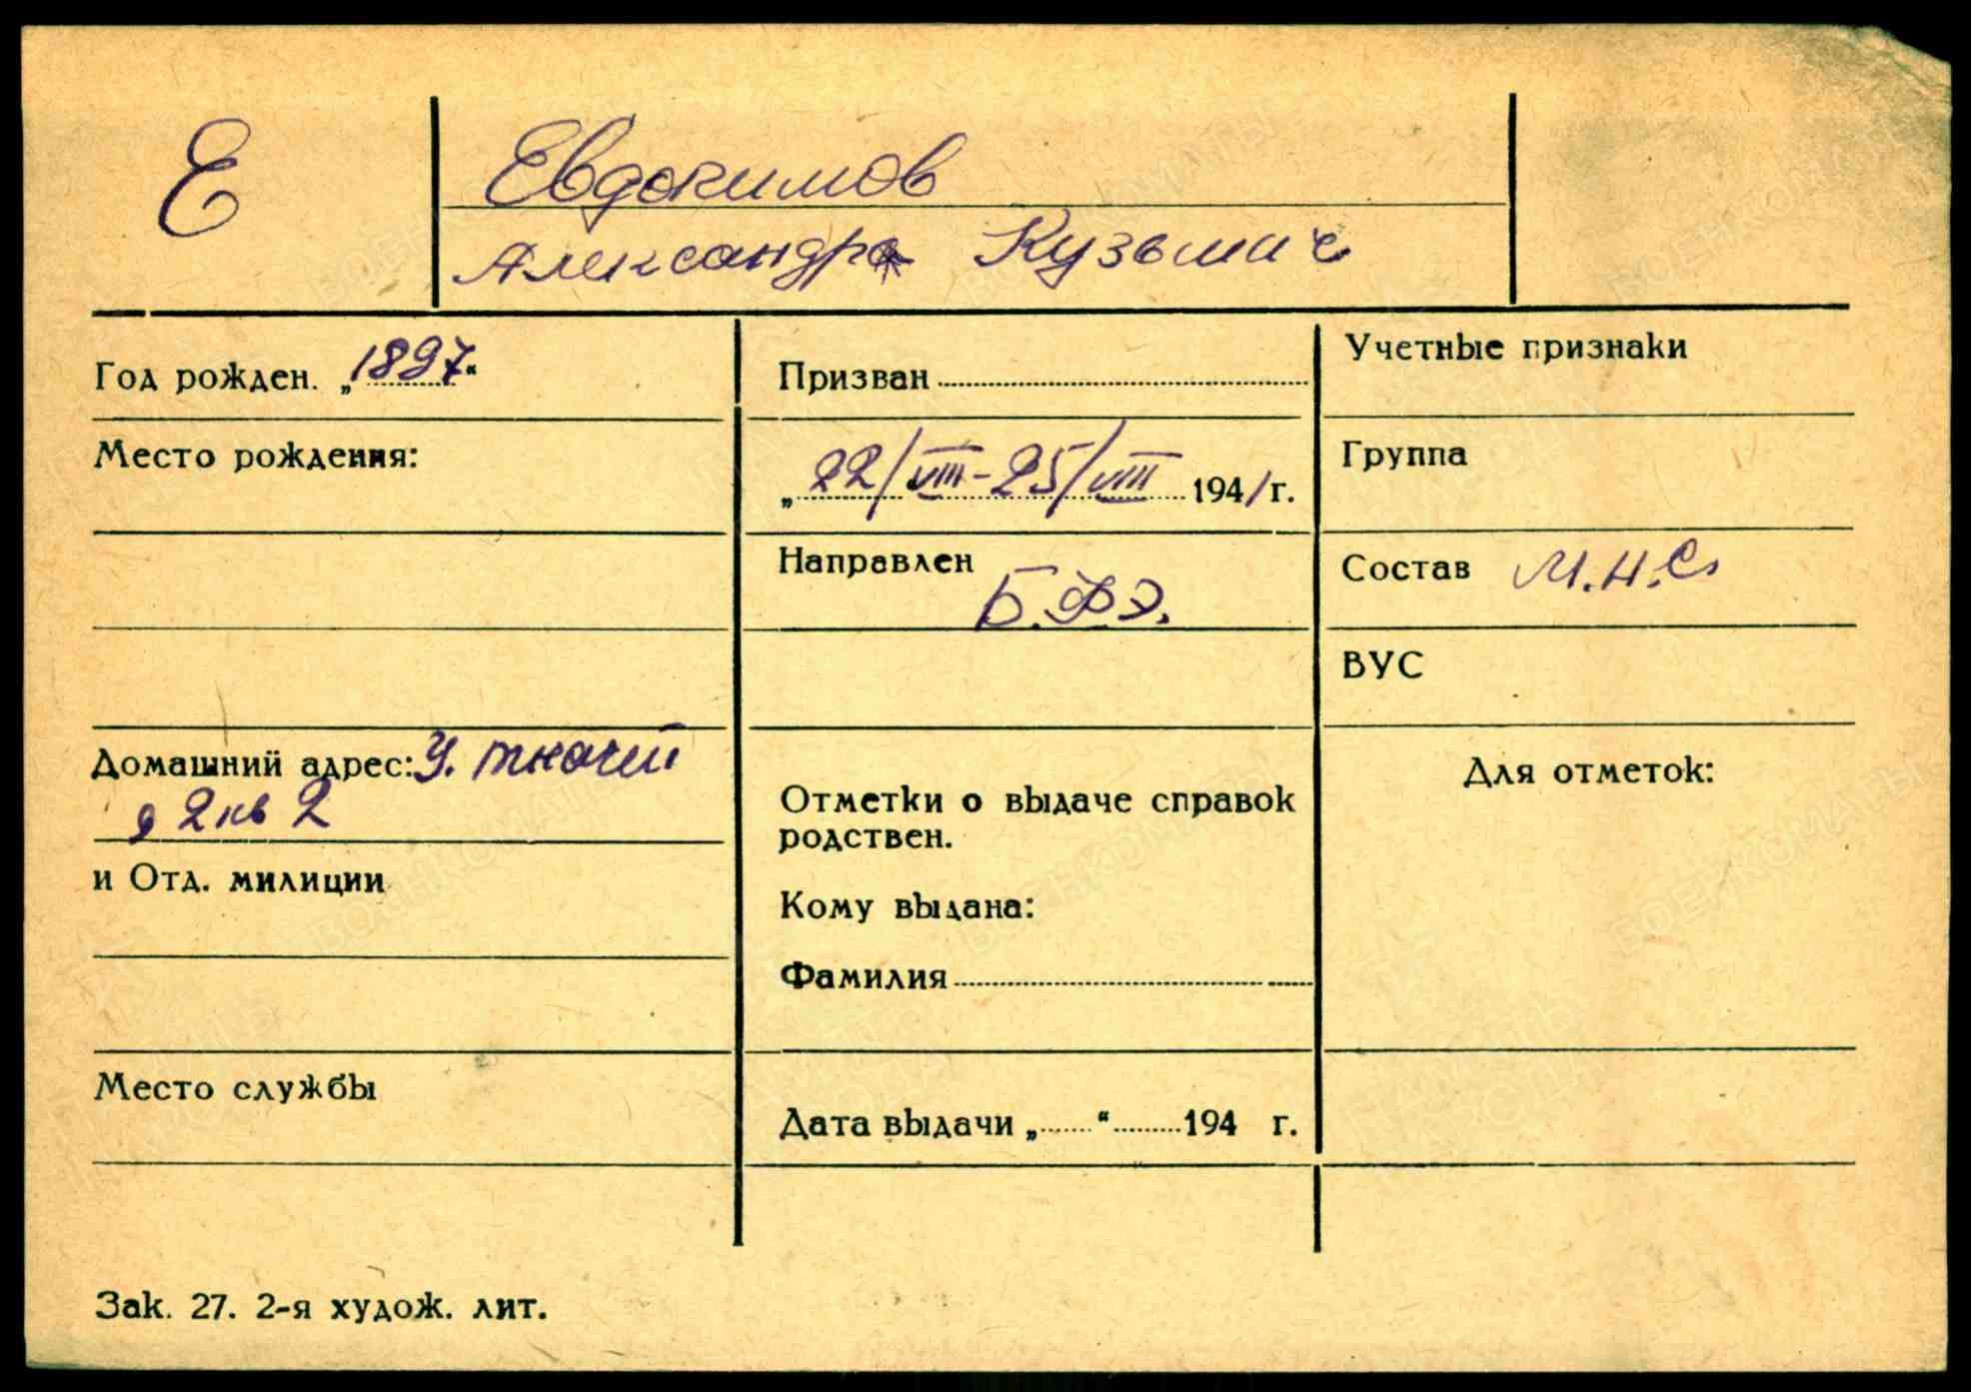 Е
Евдокимов
Александр Кузьмич
Год рожден. „1897“
Место рождения:
Домашний адрес: У. ткачей
д 2 кв 2
и Отд. милиции
Место службы
Призван
„22/VIII-25/VIII 1941 г.
Направлен
Б.ФЭ.
Отметки о выдаче справок
родствен.
Кому выдана:
Фамилия
Дата выдачи „ “ 194 г.
Учетные признаки
Группа
Состав М.Н.С.
ВУС
Для отметок:
Зак. 27. 2-я худож. лит.